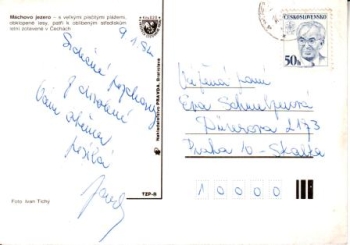 Máchovo jezero – s velkým písčitým plážem,
obklopené lesy, patří k oblíbeným střediskům
letní zotavené v Čechách
9
Srdečné pozdravy
z dovolené
Vám
posílá
Foto Ivan Tichý
Nakladatelství PRAVDA, Bratislava
TZP-B
ČESKOSLOVENSKO
50 h
Vážená paní
Eva
Dürerova 2173
Praha 10 - Skalka
10000